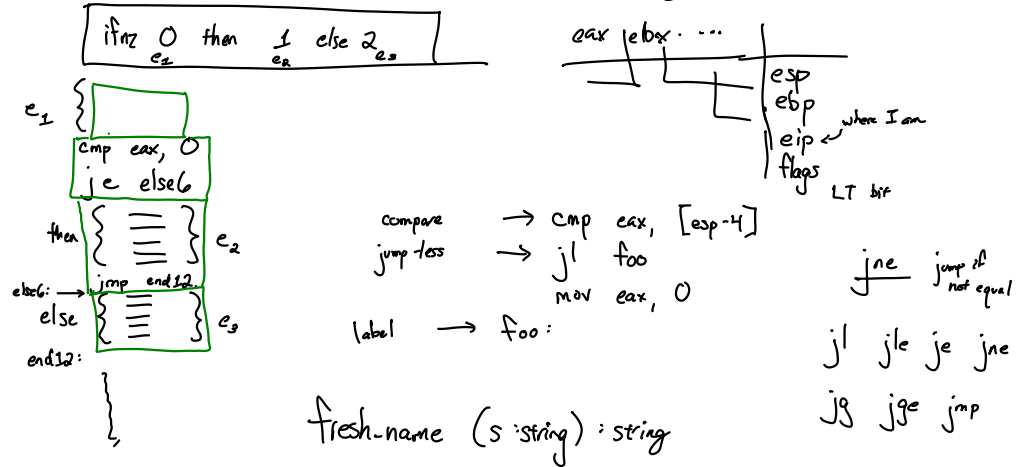 ifnz 0 then 1 else 2
e1 e2 e3
e1
cmp eax, 0
je else6
then
e2
jmp end12
else6:
else
e3
end12:
eax ebx ...
esp
ebp
eip
where I am
flags
LT bit
compare → cmp eax, [esp-4]
jump-less → jl foo
mov eax, 0
label → foo:
jne jump if
not equal
jl jle je jne
jg jge jmp
fresh-name (s:string) : string